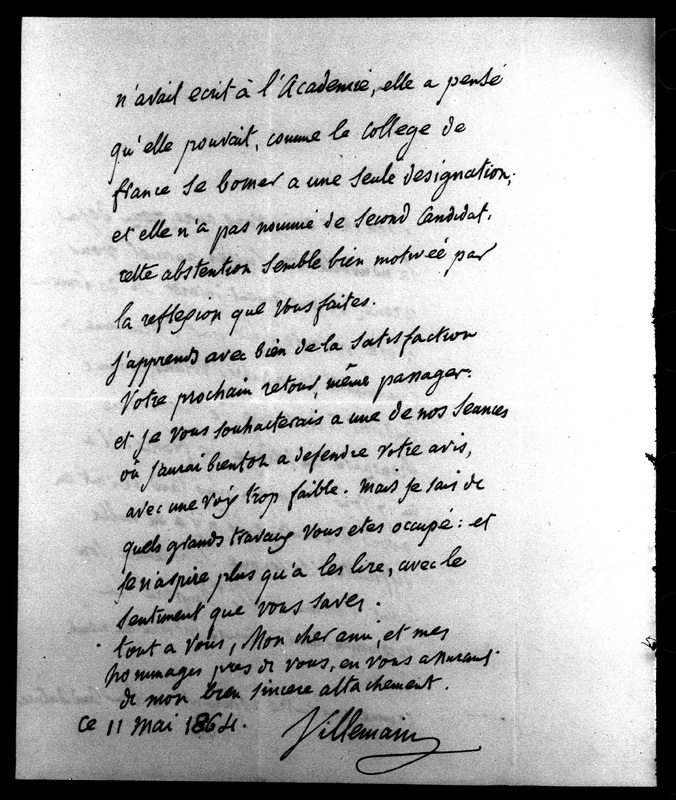 n'avait ecrit à l'Academie, elle a pensé
qu'elle pouvait, comme le college de
france se borner a une seule designation;
et elle n'a pas nommé de second Candidat.
cette abstention semble bien motiveé par
la reflexion que vous faites.
j'apprends avec bien de la satisfaction
Votre prochain retour, même passager:
et je vous souhaiterais a une de nos seances
où j'aurai bientôt a defendre votre avis,
avec une voix trop faible. mais je sais de
quels grands travaux vous etes occupé: et
je n'aspire plus qu'à les lire, avec le
sentiment que vous savez.
tout a vous, Mon cher ami, et mes
hommages pres de vous, en vous assurant
de mon bien sincere attachement.
Ce 11 Mai 1864.
Villemain